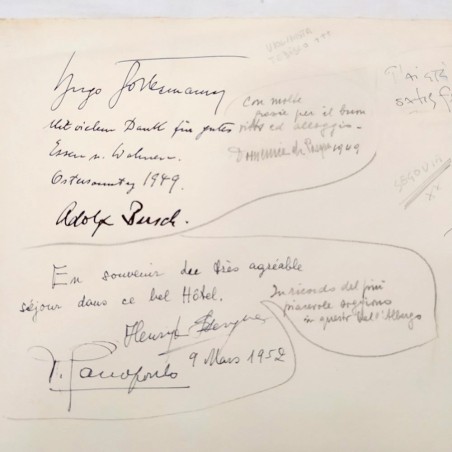 Mit vielem Dank für gutes
Essen u. Wohnen.
Ostersonntag 1949.
Adolf Busch.
Con molte
grazie per il buon
vitto ed alloggio
Domenica di Pasqua 1949
J'ai été
SEGOVIA
XX
En souvenir du très agréable
séjour dans ce bel Hôtel.
Henryk Szeryng
9 Mars 1952
In ricordo del più
piacevole soggiorno
in questo bell'Albergo